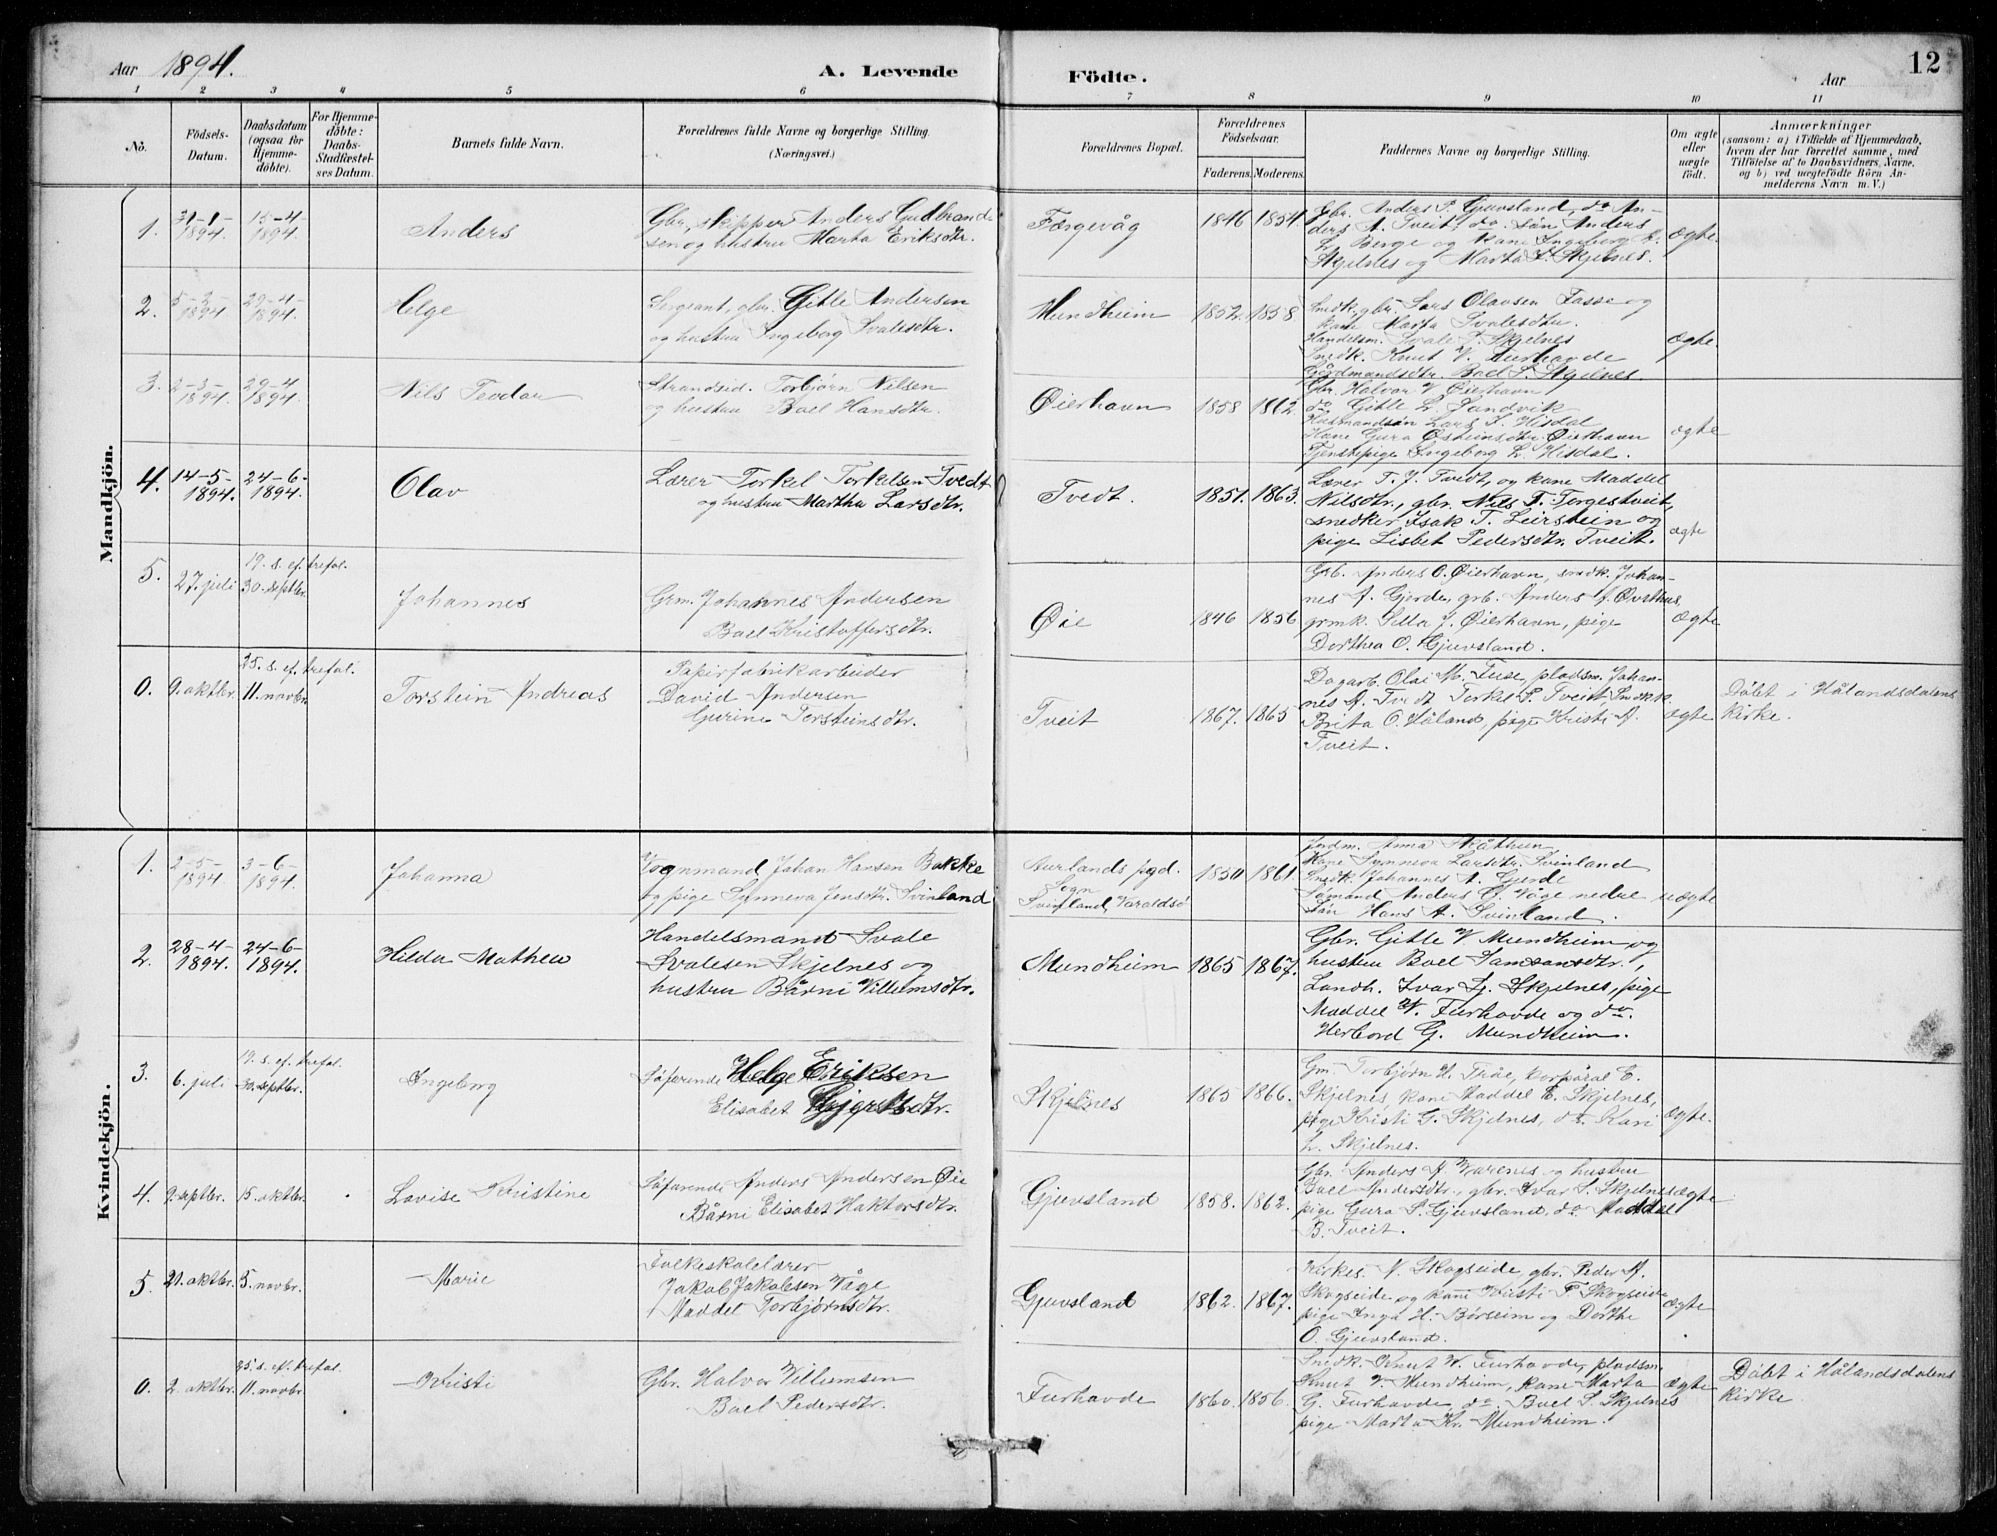 Aar 1894. A. Levende Födte. Aar 12
1 2 3 4 5 6 7 8 9 10 11
No. Födsels-Datum. Daabsdatum (ogsaa for Hjemme-döbte). For Hjemme-döbte: Daabs-Stadfæstel-ses Datum. Barnets fulde Navn. Forældrenes fulde Navne og borgerlige Stilling. (Næringsvei.) Forældrenes Bopæl. Forældrenes Födselsaar. Faderens. Moderens. Faddernes Navne og borgerlige Stilling. Om ægte eller uægte födt. Anmærkninger (saasom: a) i Tilfælde af Hjemmedaab, hvem der har forrettet samme, med Tilföielse af to Daabsvidners Navne, og b) ved uægtefödte Börn An-melderens Navn m. V.)
Mandkjön.
1. 31-1-1894. 15-4-1894. Anders
Gbr, skipper Anders Gudbrand-
sen og hustru Marta Eriksdtr.
Færgevåg 1846 1854.
Gbr. Anders P. Gjuvsland, do An-
ders A. Tveit, do. Søn Anders
L. Berge og kane Ingeborg L.
Skjelnes og Marta S. Skjelnes.
ægte.
2. 5-2-1894. 29-4-1894. Helge
Sergeant, gbr. Gitle Andersen
og hustru Ingeborg Svalesdtr.
Mundheim 1852. 1858
Snedk, gbr. Lars Olavsen Fasse og
kane Marta Svalesdtr.
Handelsm. Svale S. Skjelnes
Snedk. Knut V. Furhovde
Gårdmandsdtr. Boel S. Skjelnes.
ægte.
3. 2-3-1894. 29-4-1894. Nils Teodor
Strandsid. Torbjørn Nilsen
og hustru Boel Hansdtr.
Øierhavn 1858 1862.
Gbr. Halvor V Øierhavn
do Gitle L. Sandvik
Husmandsøn Lars S. Hisdal
Kane Gura Østeinsdtr. Øierhavn
Tjenstepige Ingeborg L. Hisdal.
ægte
4. 14-5-1894. 24-6-1894. Olav
Lærer Torkel Torkelsen Tvedt
og hustru Martha Larsdtr.
Tvedt. 1851. 1863.
Lærer T. J. Tvedt, og kane Maddel
Nilsdtr., gbr. Nils T. Torgestveit,
snedker Isak T. Leirstein og
pige Lisbet Pedersdtr. Tveit.
ægte
5. 27. juli 19. s. ef. trefol. 30. septbr. Johannes
Grm. Johannes Andersen
Boel Kristoffersdtr.
Øie 1846 1856
Grb. Anders O. Øierhavn, snedk. Johan-
nes A. Gjerde, grb. Anders A. Øvsthus,
grmk. Silla J. Øierhavn, pige
Dorthea O. Gjuvsland.
ægte
0. 9. oktbr. 25. s. ef. trefol. 11. novbr. Torstein Andreas
Papirfabrikarbeider
David Andersen
Gurine Torsteinsdtr.
Tveit 1867. 1865
Dagarb. Olai M. Tuse, pladsm. Johan-
nes A. Tvedt Torkel P. Tveit, Snedkk
Brita O. Håland, pige Kristi A.
Tveit.
ægte
Döbt i Hålandsdalens
kirke.
Kvindekjön.
1. 2-5-1894 3-6-1894. Johanna
Vognmand Johan Hansen Bakke
og pige Synneva Jensdtr. Svinland
Aurlands pgd.
Sogn
Svinland, Varaldsö
1850 1861.
Indm. Anna
Kane Synneva Larsdtr. Svinland
Snedk. Johannes A. Gjerde
Sömand Anders G. Våge nedre
Søn Hans A. Svinland.
uægte
2. 28-4-1894. 24-6-1894. Hilda Mathea
Handelsmand Svale
Svalesen Skjelnes og
hustru Bårni Villumsdtr.
Mundheim 1865 1867.
Gbr. Gitle V Mundheim og
hustru Boel Samsonsdtr.,
Landh. Ivar Lj. Skjelnes, pige
Maddel V. Furhovde og do.
Herbord G. Mundheim.
3. 6. juli 19. s. ef. trefol. 30. septbr. Ingeborg
Söfarende Helge Eriksen
Elisabet
Skjelnes 1865 1866.
Gm. Torbjørn H. Tråe, korporal E.
Skjelnes kane Maddel E. Skjelnes,
pige Kristi G. Skjelnes, do. Kari
L. Skjelnes.
ægte.
4. 9. septbr. 15. oktbr. Lovise Kristine
Söfarende Anders Andersen Øie
Bårni Elisabet Haktorsdtr.
Gjuvsland 1858. 1862.
Gbr. Anders A. Varenes og hustru
Boel Andersdtr., gbr. Ivar S. Skjelnes
pige Gura S. Gjuvsland, do. Maddel
B. Tveit.
ægte
5 21. oktbr. 5. novbr. Marie
Folkeskolelærer
Jakob Jakobsen Våge
Maddel Torbjørnsdtr.
Gjuvsland 1862. 1867.
Kirkes. N. Skogseide, gbr. Peder A.
Skogseide og kane Kristi T. Skogseide
pige Inga H. Börseim og Dorthe
O. Gjuvsland.
ægte
0. 2. oktbr. 25. s. ef. trefol. 11. novbr. Kristi
Gbr. Halvor Villumsen
Boel Pedersdtr.
Furhovde 1860. 1856.
Snedk. Knut W. Furhovde, pladsm.
Knut V. Mundheim, kane Marta
G. Furhovde, do. Boel S. Skjelnes
pige Marta Kr. Mundheim.
ægte
Döbt i Hålandsdalens
kirke.